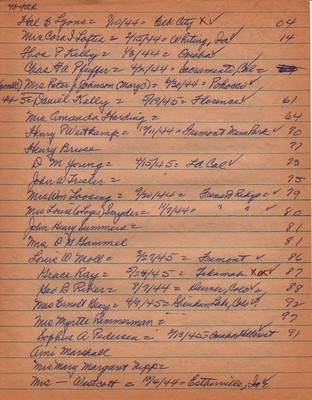 Hal E Lyons = 7/10/44 = Oak City X✓ 04
Mrs Cora I Loftis = 2/15/44 = Whiting, Ia✓ 14
Thos P Kelly = 1/3/44 = Omaha✓
Chas G A Pfeiffer = Sacramento, Cal =
Mrs Peter J Johnson (Margo) = 4/30/44 =
44-5= (Daniel Kelly = 5/19/45 = Florence✓ 61
Mrs Amanda Harding = 64
Henry Westkamp = 12/11/44 = Fremont Mem Park✓ 70
Henry Bruse 71
D M Young = 7/15/45 = La Cal✓ 73
John W Frazier = 75
Mrs Wm Loosing = 9/20/44 = Fremont Ridge =✓ 79
Mrs Louise Snyder = 11/7/44 = " " ✓ 80
John Henry Summers = 81
Mrs D H Gammel 81
Louie W Moll = 3/27/45 = Fremont ✓ 86
Grace Ray = 3/24/45 = Tekamah XOX✓ 87
Geo B Riker = 8/7/44 = Denver, Colo✓ 88
Mrs Ernest Doug = 4/9/45 = Lake, Colo✓ 92
Mrs Myrtle Rimmerman = 97
Sophus A Pedersen = 2/10/45 = Omaha Hillcrest 91
Arni Marshall
Mrs Mary Margaret Nipp =
Mrs — Westcott = 10/4/44 = Estherville, Ia✓